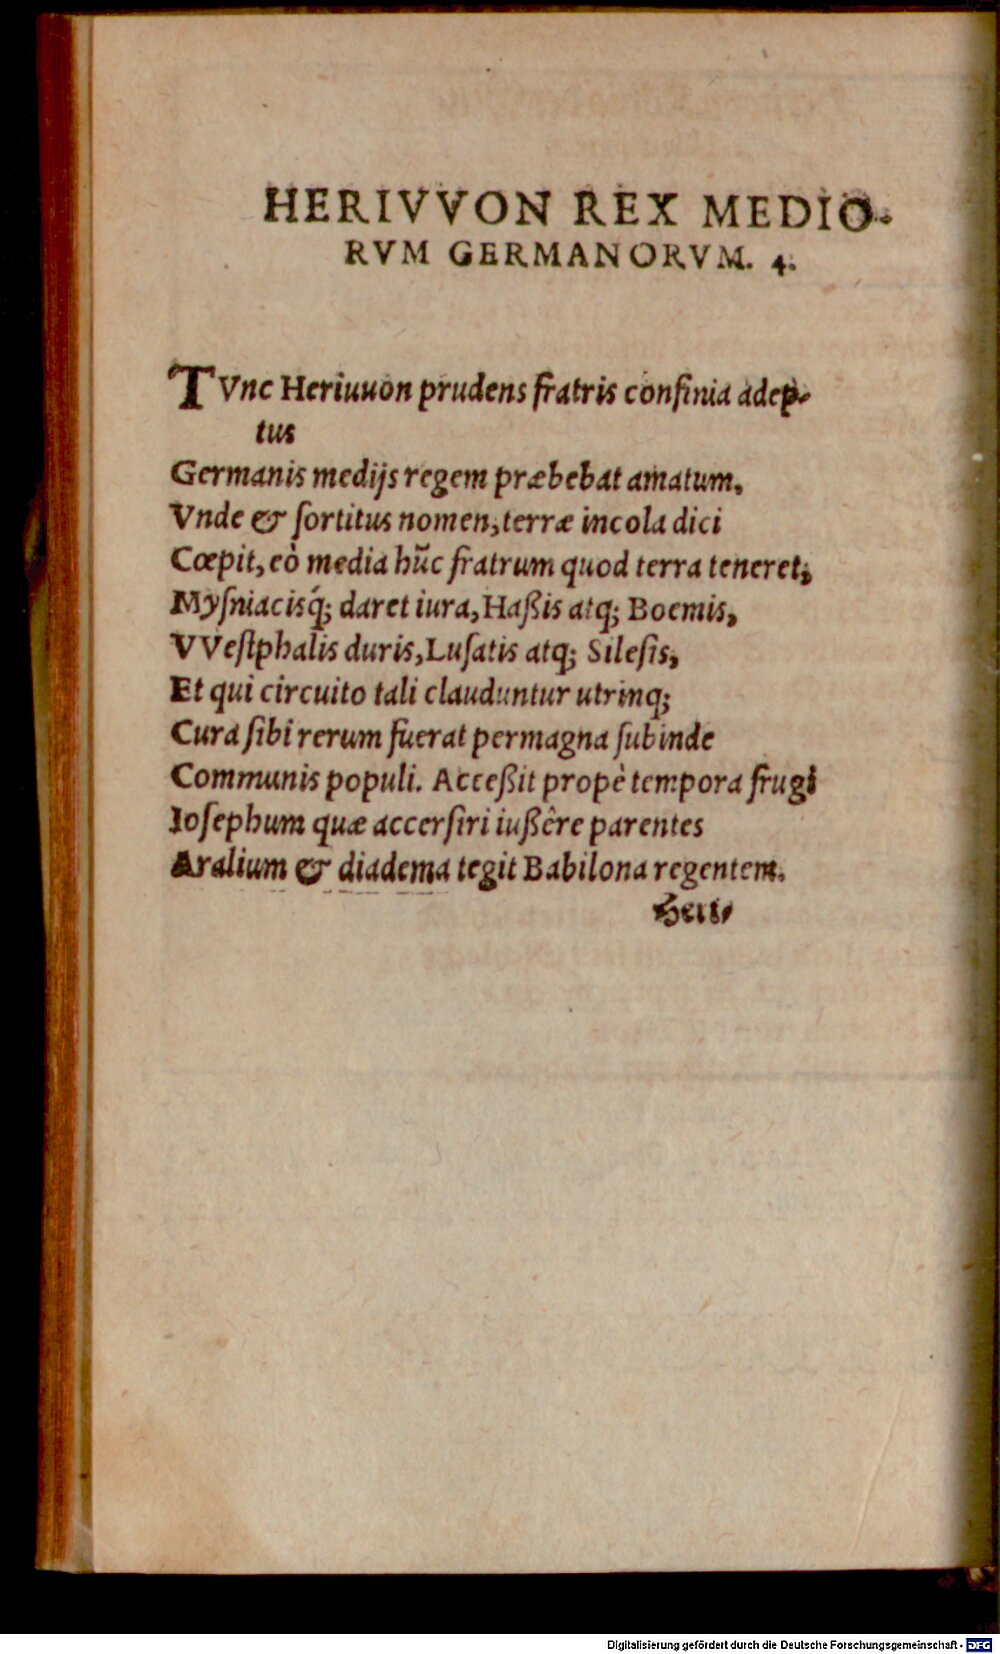 HERIVVON REX MEDIO-
RVM GERMANORVM. 4.
TVnc Heriuuon prudens fratris confinia adep-
tus
Germanis medijs regem præbebat amatum,
Vnde & ſortitus nomen, terræ incola dici
Cœpit, eò media hũc fratrum quod terra teneret,
Myſniacisq́; daret iura, Haßis atq; Boemis,
VVeſtphalis duris, Luſatis atq; Sileſis,
Et qui circuito tali clauduntur utrinq;
Cura ſibi rerum fuerat permagna ſubinde
Communis populi. Acceßit propè tempora frugi
Ioſephum quæ accerſiri iußêre parentes
Aralium & diadema tegit Babilona regentem.
Heri-
Digitalisierung gefördert durch die Deutsche Forschungsgemeinschaft - DFG